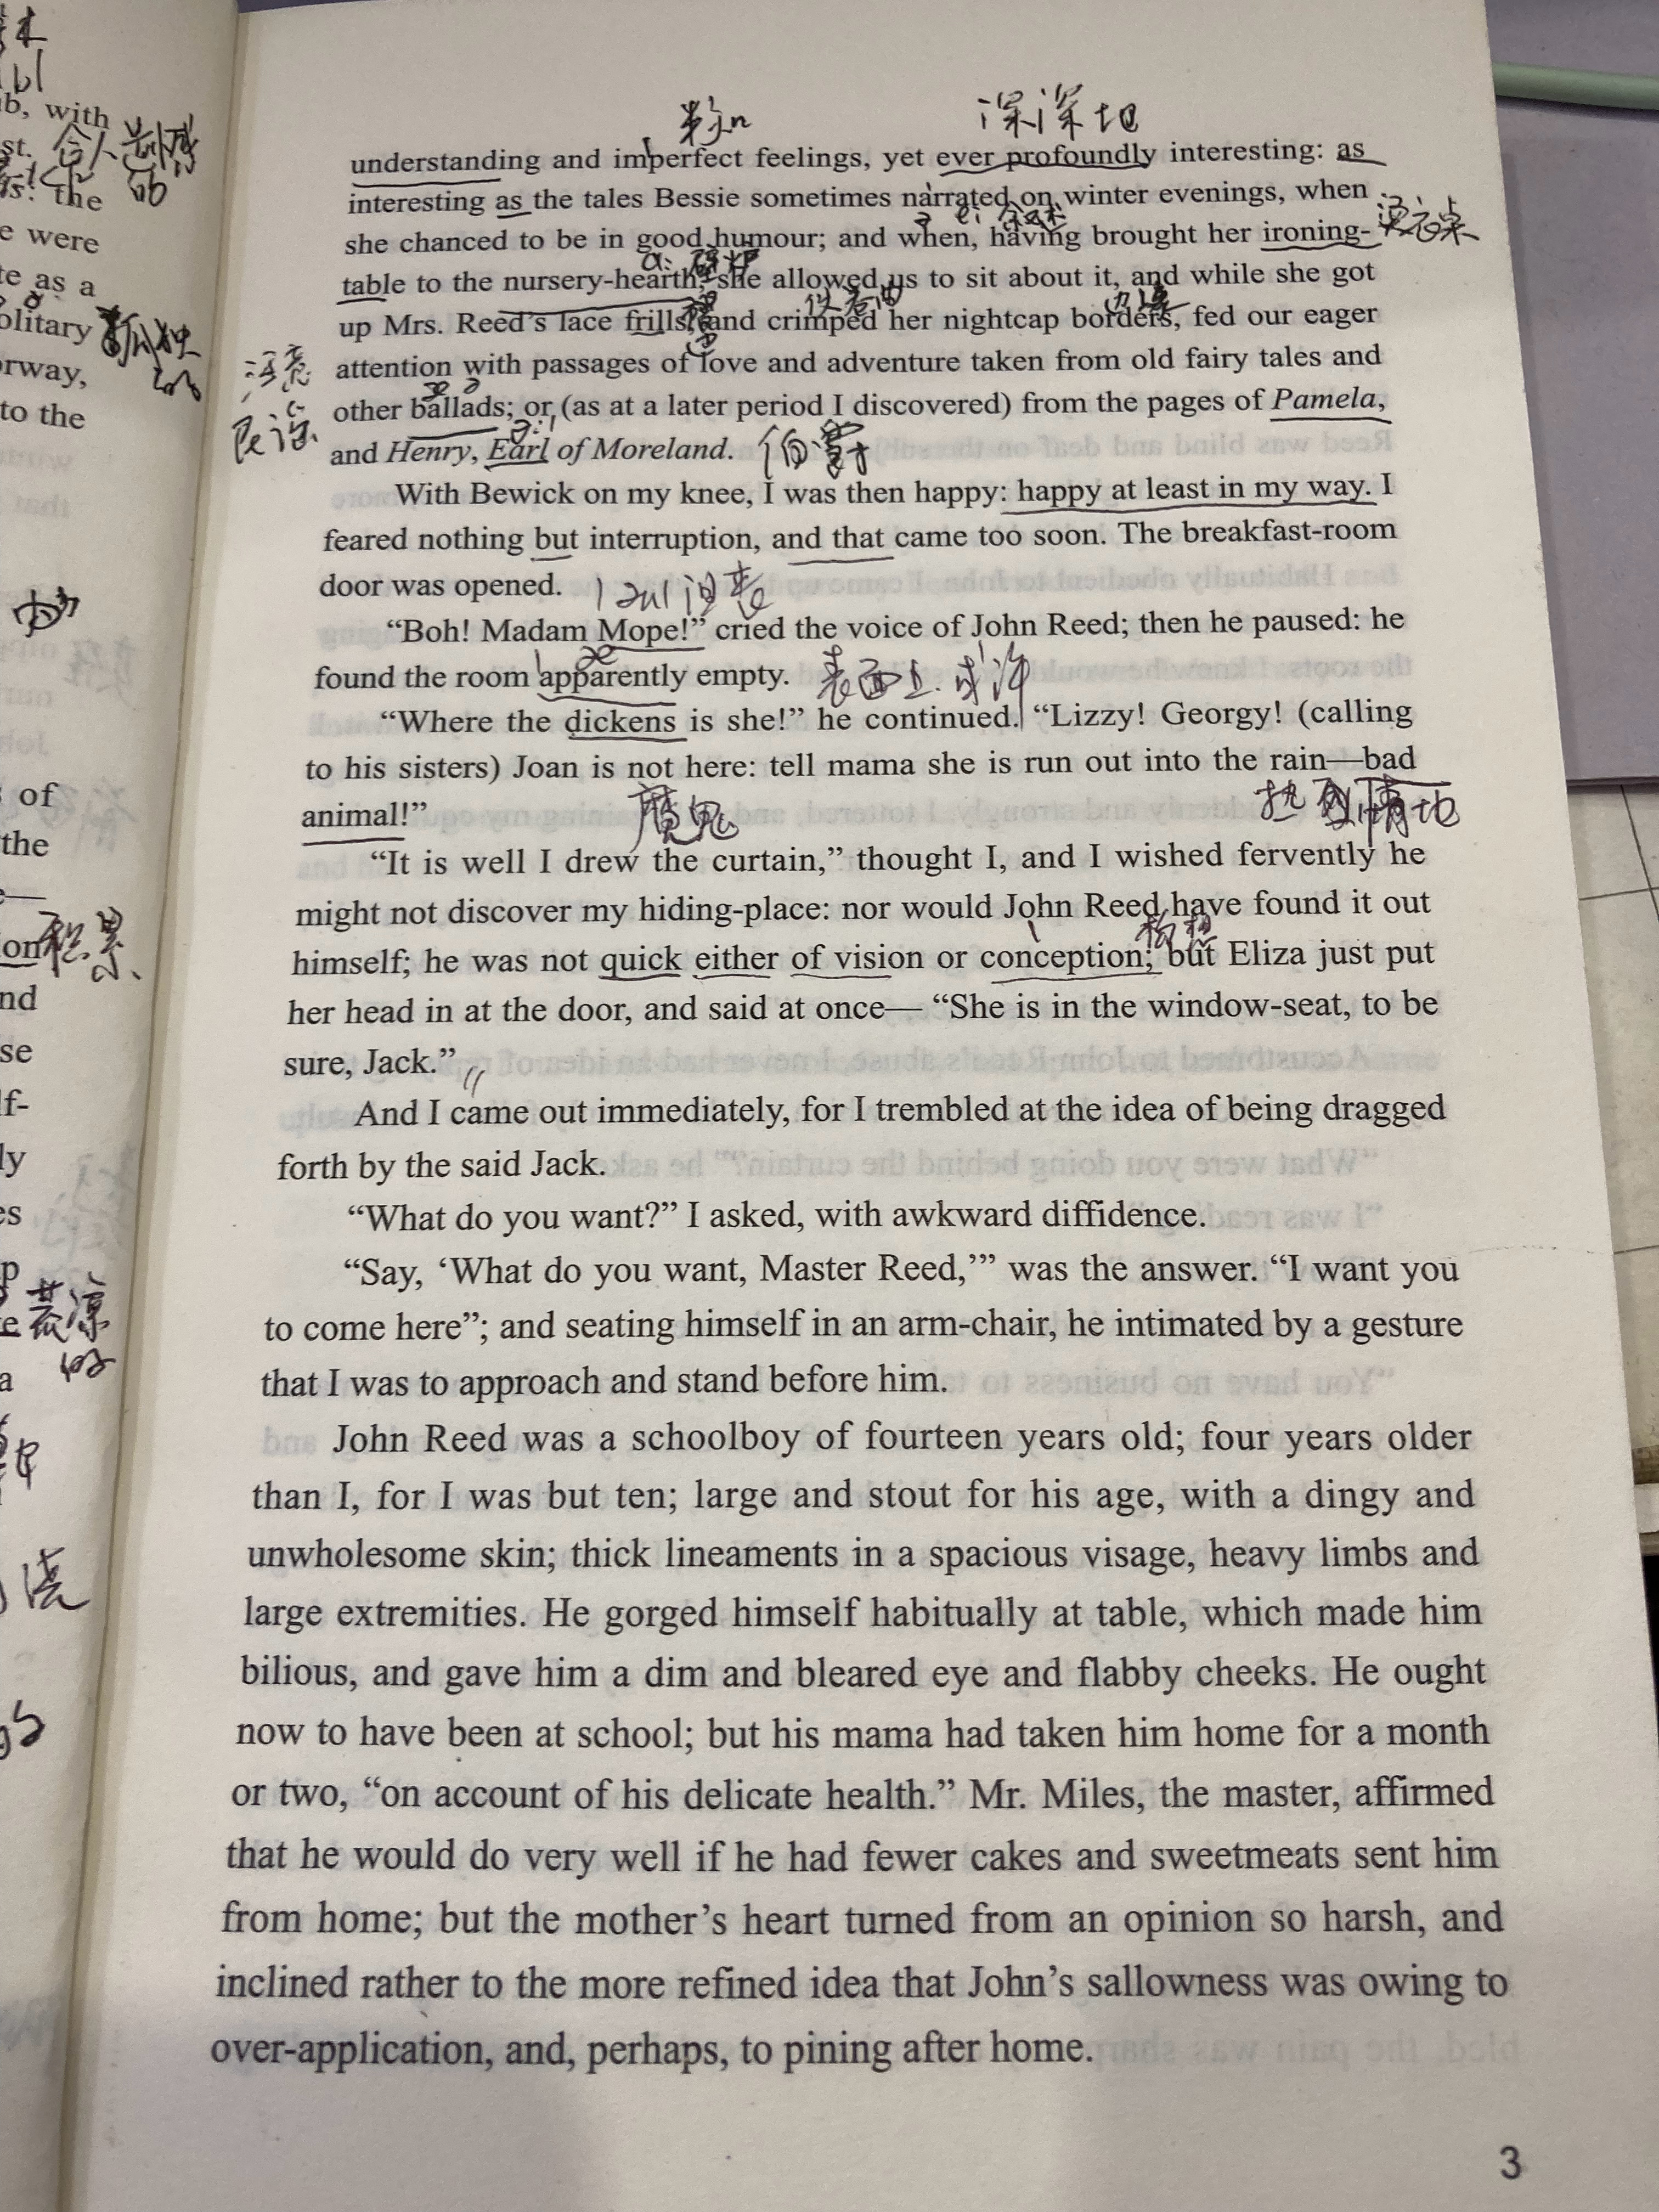 b, with
st. 令人
the
e were
te as a
olitary 孤独
rway,
to the
of
the
on 积累
nd
se
lf-
ly
es
p
e 荒凉
的
a
gs
深深地
understanding and imperfect feelings, yet ever profoundly interesting: as
interesting as the tales Bessie sometimes narrated on winter evenings, when
she chanced to be in good humour; and when, having brought her ironing-
table to the nursery-hearth, she allowed us to sit about it, and while she got
边缘
up Mrs. Reed's lace frills, and crimped her nightcap borders, fed our eager
attention with passages of love and adventure taken from old fairy tales and
other ballads; or (as at a later period I discovered) from the pages of Pamela,
民谣
and Henry, Earl of Moreland. 伯爵
With Bewick on my knee, I was then happy: happy at least in my way. I
feared nothing but interruption, and that came too soon. The breakfast-room
door was opened.
“Boh! Madam Mope!” cried the voice of John Reed; then he paused: he
found the room apparently empty. 表面上. 或许
“Where the dickens is she!” he continued. “Lizzy! Georgy! (calling
to his sisters) Joan is not here: tell mama she is run out into the rain—bad
animal!” 魔鬼 热烈情地
“It is well I drew the curtain,” thought I, and I wished fervently he
might not discover my hiding-place: nor would John Reed have found it out
构想
himself; he was not quick either of vision or conception; but Eliza just put
her head in at the door, and said at once— “She is in the window-seat, to be
sure, Jack.”
And I came out immediately, for I trembled at the idea of being dragged
forth by the said Jack.
“What do you want?” I asked, with awkward diffidence.
“Say, ‘What do you want, Master Reed,’” was the answer. “I want you
to come here”; and seating himself in an arm-chair, he intimated by a gesture
that I was to approach and stand before him.
John Reed was a schoolboy of fourteen years old; four years older
than I, for I was but ten; large and stout for his age, with a dingy and
unwholesome skin; thick lineaments in a spacious visage, heavy limbs and
large extremities. He gorged himself habitually at table, which made him
bilious, and gave him a dim and bleared eye and flabby cheeks. He ought
now to have been at school; but his mama had taken him home for a month
or two, “on account of his delicate health.” Mr. Miles, the master, affirmed
that he would do very well if he had fewer cakes and sweetmeats sent him
from home; but the mother’s heart turned from an opinion so harsh, and
inclined rather to the more refined idea that John’s sallowness was owing to
over-application, and, perhaps, to pining after home.
3